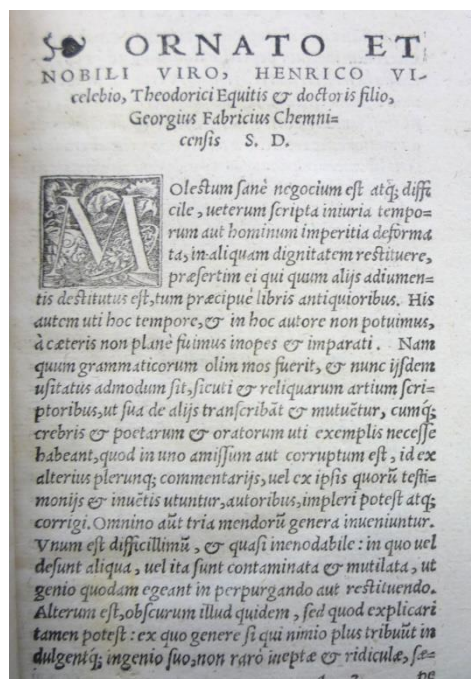 ORNATO ET
NOBILI VIRO, HENRICO VI-
celebio, Theodorici Equitis & doctoris filio,
Georgius Fabricius Chemni=
censis S. D.
MOlestum sanè negocium est atq; diffi
cile, ueterum scripta iniuria tempo=
rum aut hominum imperitia deforma
ta, in aliquam dignitatem restituere,
præsertim ei qui quum alijs adiumen-
tis destitutus est, tum præcipuè libris antiquioribus. His
autem uti hoc tempore, & in hoc autore non potuimus,
à cæteris non planè fuimus inopes & imparati. Nam
quum grammaticorum olim mos fuerit, & nunc ijsdem
usitatus admodum sit, sicuti & reliquarum artium scri=
ptoribus, ut sua de alijs transcribãt & mutuẽtur, cumq;
crebris & poetarum & oratorum uti exemplis necesse
habeant, quod in uno amissum aut corruptum est, id ex
alterius plerunq; commentarijs, uel ex ipsis quorũ testi=
monijs & inuẽtis utuntur, autoribus, impleri potest atq;
corrigi. Omnino aũt tria mendorũ genera inueniuntur.
Vnum est difficillimũ, & quasi inenodabile: in quo uel
desunt aliqua, uel ita sunt contaminata & mutilata, ut
genio quodam egeant in perpurgando aut restituendo.
Alterum est, obscurum illud quidem, sed quod explicari
tamen potest: ex quo genere si qui nimio plus tribuũt in
dulgentq; ingenio suo, non rarò ineptæ & ridiculæ, sæ=
pe